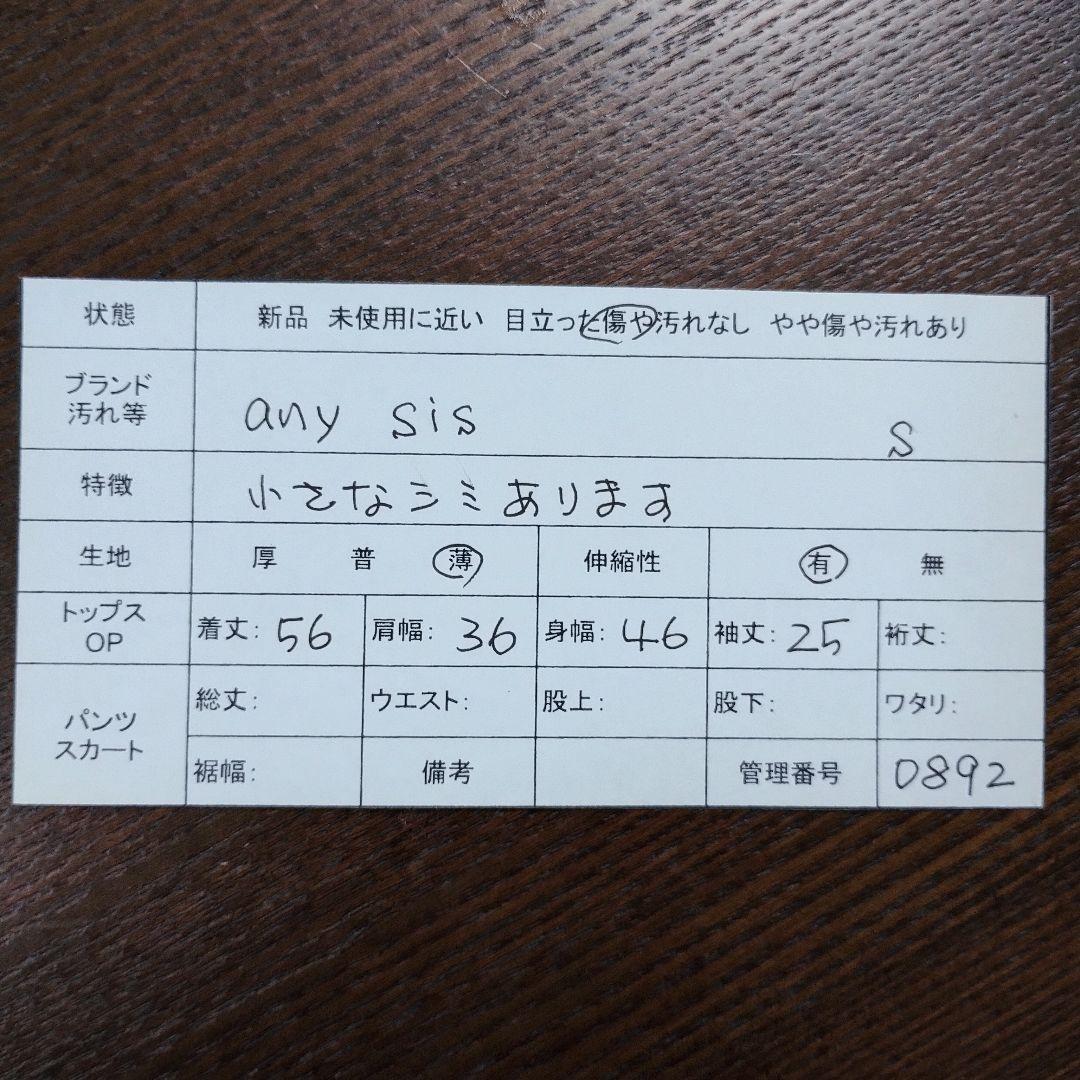 状態 新品 未使用に近い 目立った傷や汚れなし やや傷や汚れあり
ブランド
汚れ等 any sis S
特徴 小さなシミあります
生地 厚 普 薄 伸縮性 有 無
トップス
OP 着丈: 56 肩幅: 36 身幅: 46 袖丈: 25 裄丈:
パンツ
スカート 総丈: ウエスト: 股上: 股下: ワタリ:
裾幅: 備考 管理番号 0892